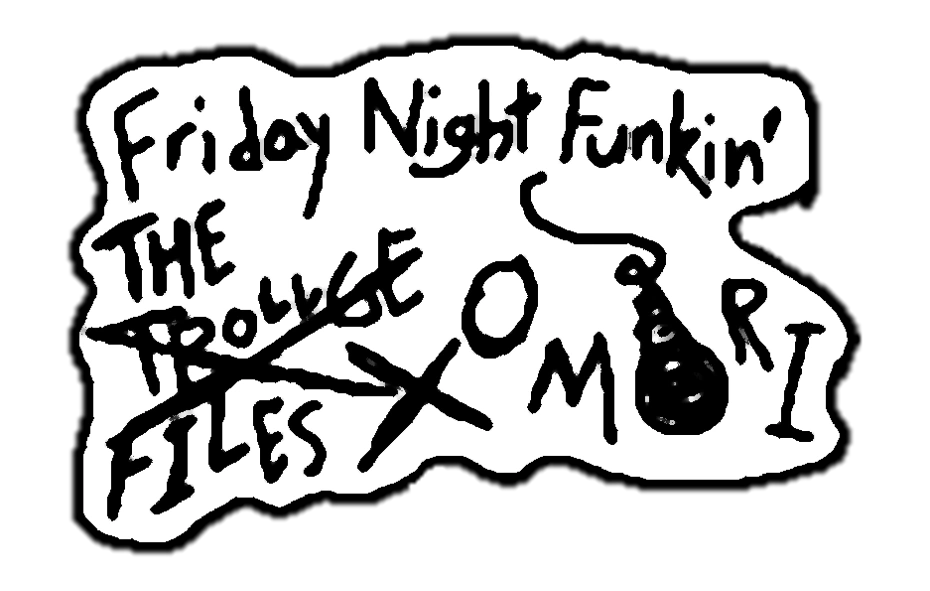 Friday Night Funkin'
THE
TROLLGE
FILES X OMORI